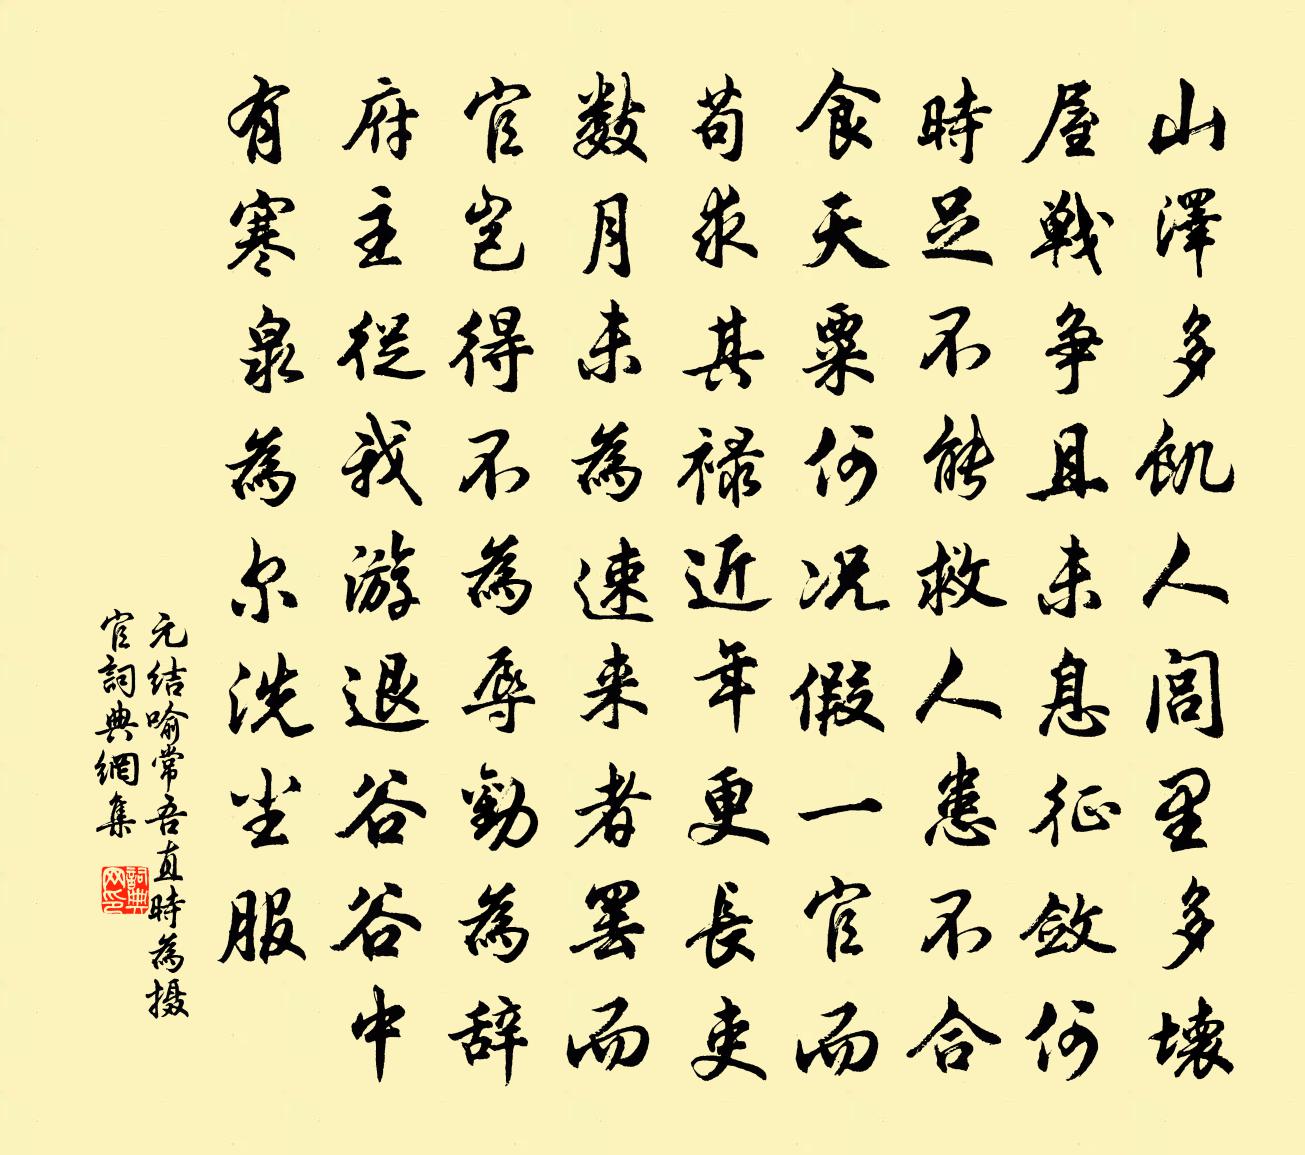 山澤多飢人閭里多壞
屋戰爭且未息征斂何
時足不能救人患不合
食天粟何況假一官而
苟求其祿近年更長吏
數月未為速来者罷而
官豈得不為辱勸為辞
府主從我游退谷谷中
有寒泉為尔洗尘服
元结喻常吾直時為摄
官詞典網集
詞典网印